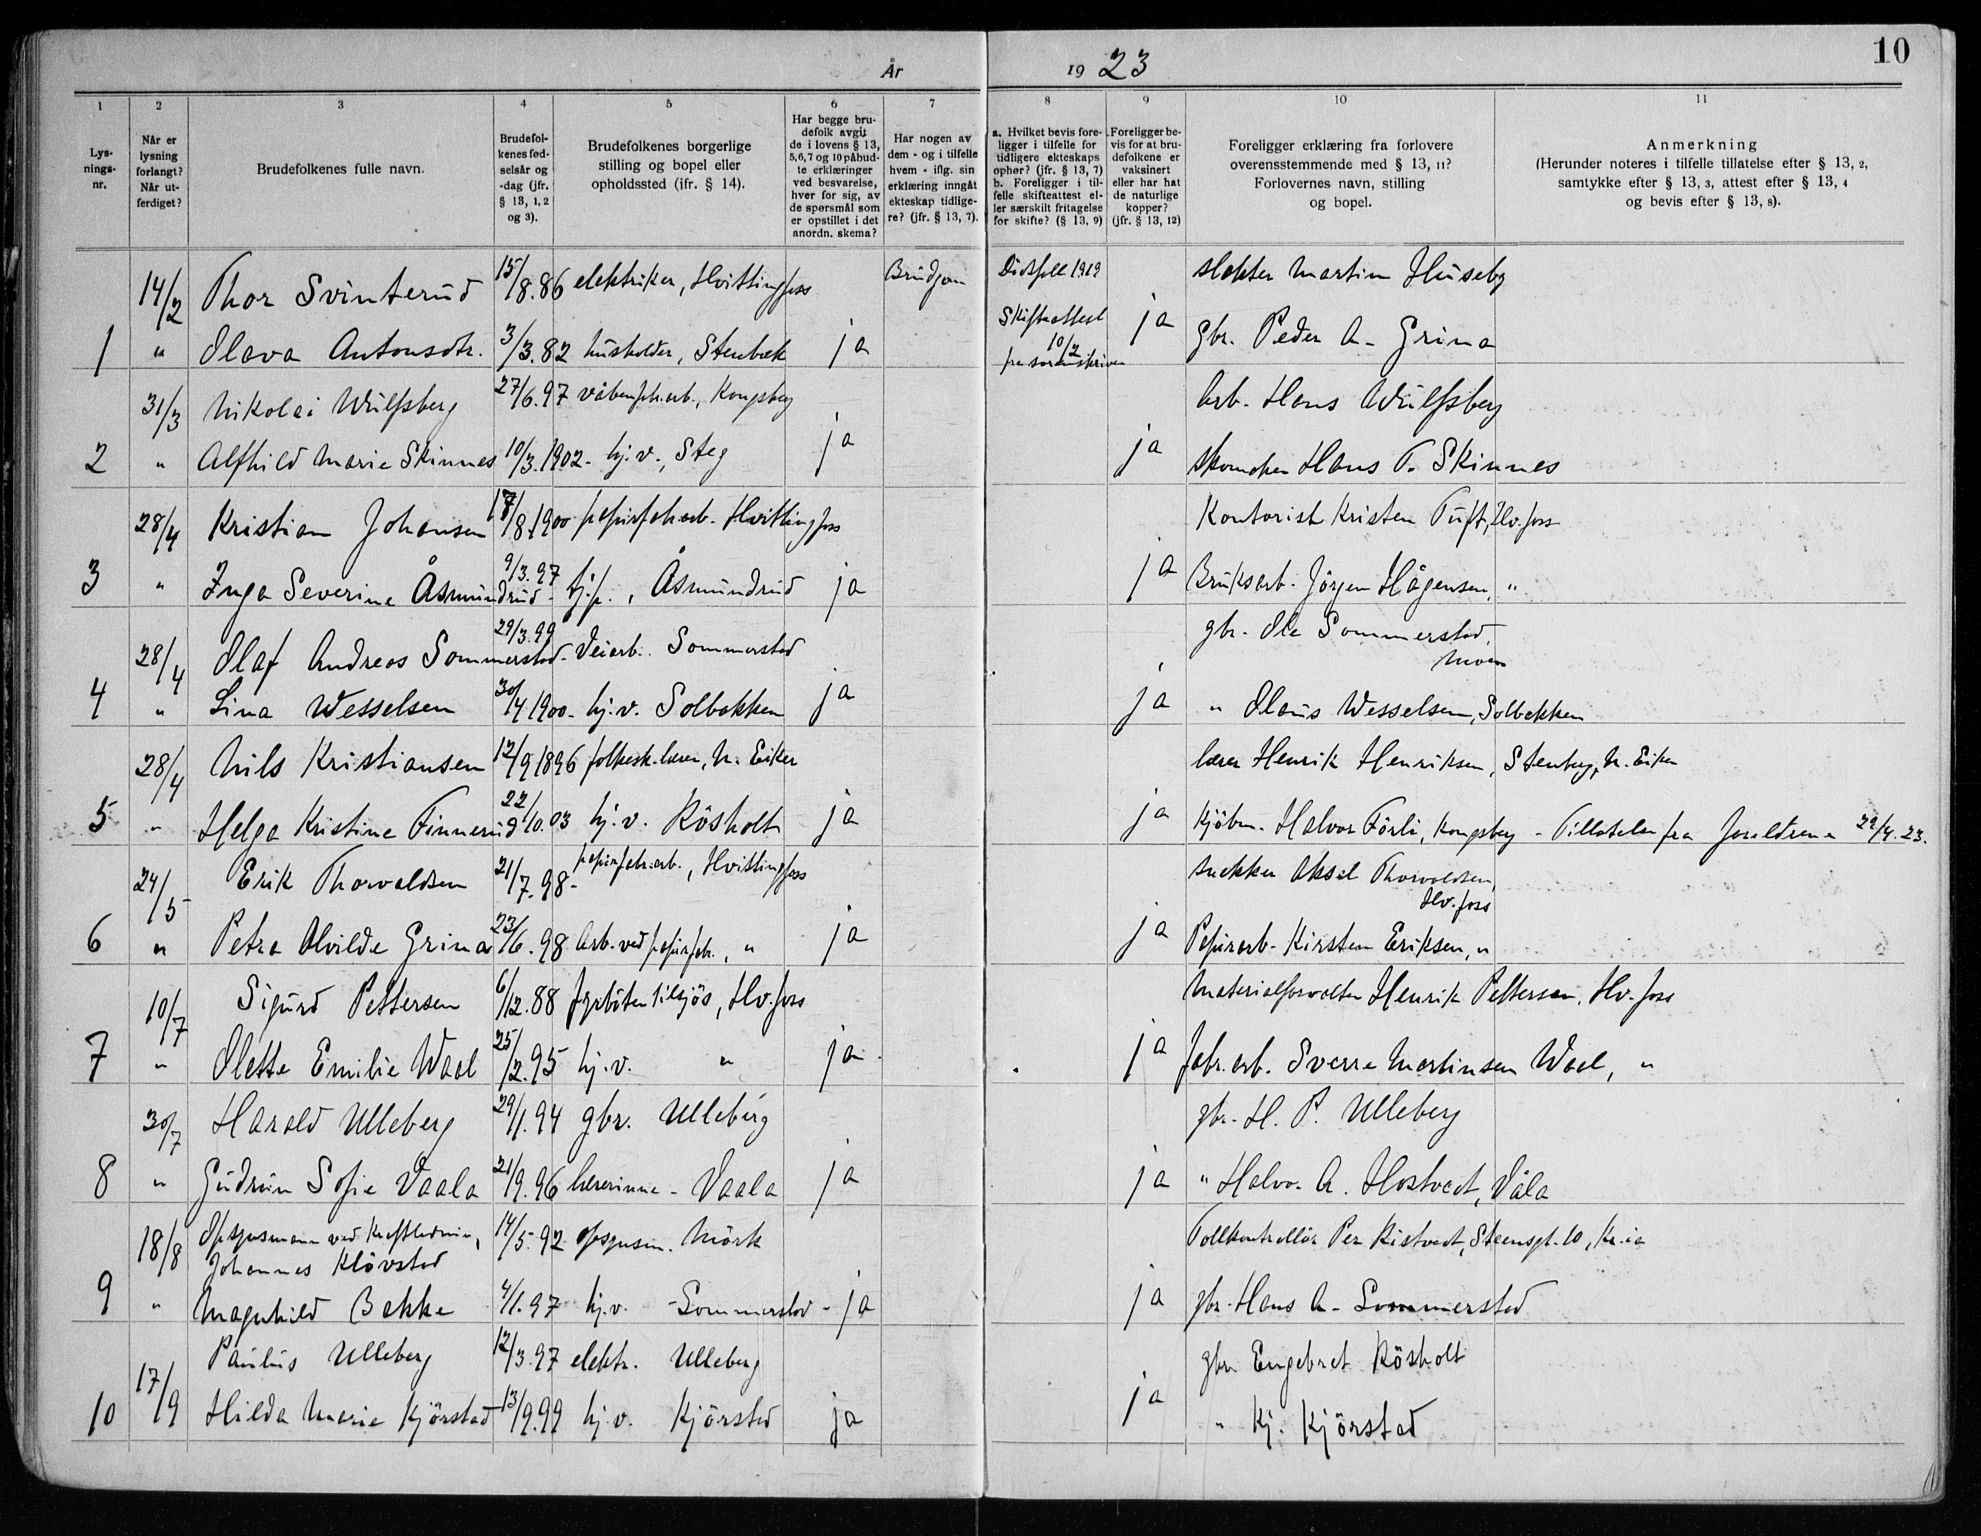 10
År 1923
1
2
3
4
5
6
7
8
9
10
11
Lys-
nings-
nr.
Når er
lysning
forlangt?
Når ut-
ferdiget?
Brudefolkenes fulle navn.
Brudefol-
kenes fød-
selsår og
-dag (jfr.
§ 13, 1, 2
og 3).
Brudefolkenes borgerlige
stilling og bopel eller
opholdssted (jfr. § 14).
Har begge bru-
defolk avgit
de i lovens § 13,
5, 6, 7 og 10 påbud-
te erklæringer
ved besvarelse,
hver for sig, av
de spørsmål som
er opstillet i det
anordn. skema?
Har nogen av
dem - og i tilfelle
hvem - iflg. sin
erklæring inngått
ekteskap tidlige-
re? (jfr. § 13, 7).
a. Hvilket bevis fore-
ligger i tilfelle for
tidligere ekteskaps
ophør? (jfr. § 13, 7)
b. Foreligger i til-
felle skifteattest el-
ler særskilt fritagelse
for skifte? (§ 13, 9)
Foreligger be-
vis for at bru-
defolkene er
vaksinert
eller har hat
de naturlige
kopper?
(jfr. § 13, 12)
Foreligger erklæring fra forlovere
overensstemmende med § 13, 11?
Forlovernes navn, stilling
og bopel.
Anmerkning
(Herunder noteres i tilfelle tillatelse efter § 13, 2,
samtykke efter § 13, 3, attest efter § 13, 4
og bevis efter § 13, 8).
14/2 Thor Svinterud 15/8.86 elektriker, Hvittingfoss Brudgom Dødsfall 1919 slakter Martin Huseby
1 " Olava Antonsdtr. 3/3.82 husholder, Stenbæk ja Skifteattest 10/2 fra sorenskriven ja gbr. Peder A. Grina
31/3 Nikolai Wulfsberg 27/6.97 våbenfabr.arb., Kongsberg Arb. Hans Wulfsberg
2 " Alfhild Marie Skinnes 10/3.1902 - hj.v., Steg ja ja skomaker Hans T. Skinnes
28/4 Kristian Johansen 17/8.1900 papirfabr.arb. Hvittingfoss Kontorist Kristen Tuft, Hv.foss
3 " Inga Severine Åsmundrud 9/3.97 - tj.p., Åsmundrud ja ja Bruksarb. Jörgen Hågensen, "
28/4 Olaf Andreas Sommerstad 29/3.99 - Veiarb. Sommerstad gbr. Ole Sommerstad,
4 " Lina Wesselsen 30/4 1900 - hj.v. Solbakken ja ja " Olaus Wesselsen, Solbakken
28/4 Nils Kristiansen 12/9 1896 folkesk.lærer, N. Eiker lærer Henrik Henriksen, Stenberg, N. Eiker
5 " Helga Kristine Finnerud 22/10.03 hj.v. Rösholt ja ja Kjöbm. Halvor Förli, Kongsberg - Tillatelse fra foreldrene 22/4.23.
24/5 Erik Thorvaldsen 21/7.98 - papirfabr.arb., Hvittingfoss snekker Aksel Thorvaldsen, Hv.foss
6 " Petra Alvilde Grina 23/6.98 Arb. ved papirfabr., " ja ja Papirarb. Kirsten Eriksen, "
10/7 Sigurd Pettersen 6/12.88 fyrböter tilsjös, Hv.foss Materialforvalter Henrik Pettersen, Hv.foss
7 " Olette Emilie Wael 25/2.95 hj.v. " ja ja fabr.arb. Sverre Martinsen Wael, "
30/7 Harald Ulleberg 29/1.94 gbr. Ulleberg gbr. H. P. Ulleberg
8 " Gudrun Sofie Vaala 21/9.96 lærerinne - Vaala ja ja " Halvor A. Hostvedt, Våla
18/8 Opsynsmann ved Kraftledning, Johannes Klövstad 14/5.92 opsynsm. Mörk Tollkontrollör Per Ristvedt, Steensgt. 10, Kr.ia
9 " Magnhild Bakke 4/1.97 hj.v. - Sommerstad - ja ja gbr. Hans A. Sommerstad
17/9 Paulus Ulleberg 12/3.97 elektr. Ulleberg gbr. Engebret Rösholt
10 Hilda Marie Kjörstad 13/9.99 hj.v. Kjörstad ja ja " Kj. Kjörstad